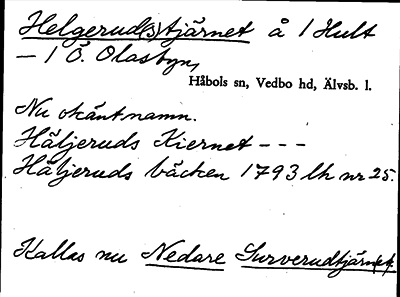 Helgerud(s)tjärnet å 1 Hult
— 1 Ö. Olasbyn,
Håbols sn, Vedbo hd, Älvsb. l.
Nu okänt namn.
Häljeruds Kiernet - - -
Häljeruds bäcken 1793 lh nr 25.
Kallas nu Nedare Surverudtjärn(et).